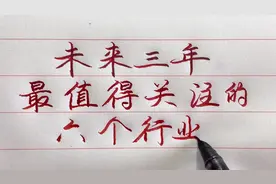 未来三年
最值得关注的
六个行业